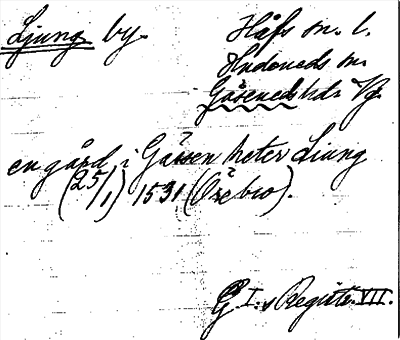 Ljung by.
Håfs sn. l.
Hudeneds sn.
Gäseneds hd. Vg.
en gård i Gässen heter Liung
(25/1) 1531 (Örebro).
G I:s Registr. VII.